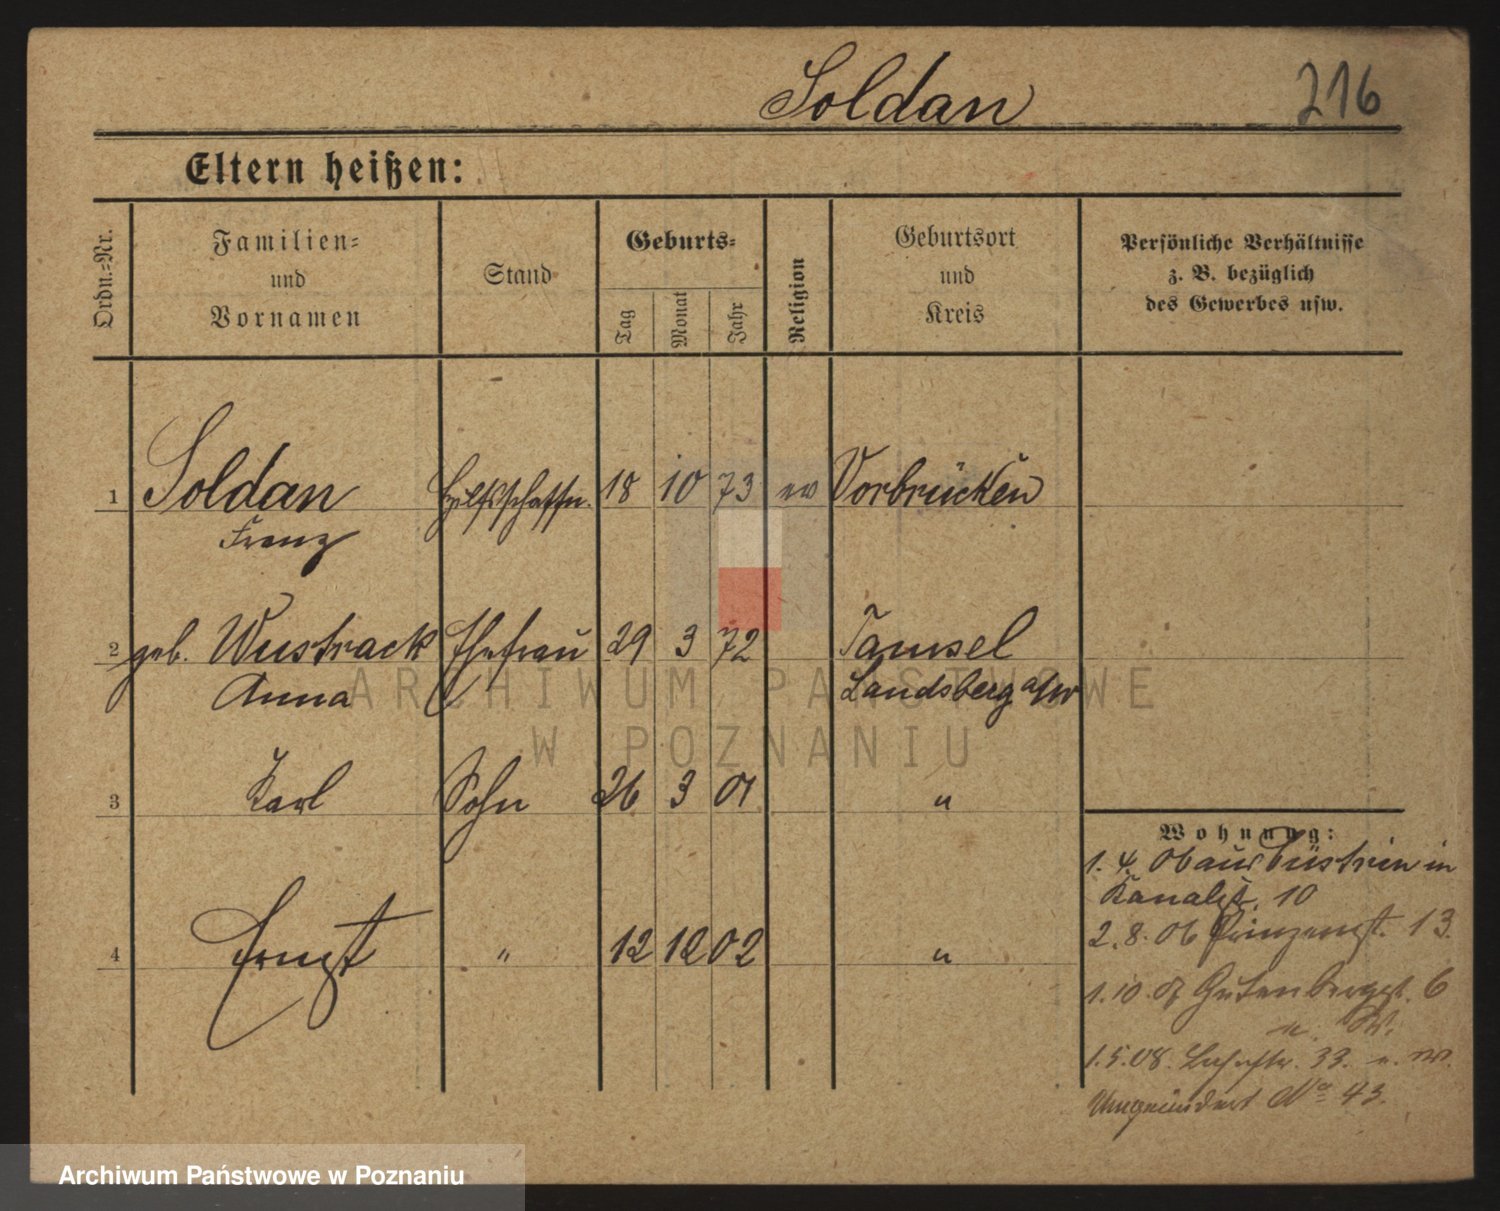 Soldan 216
Eltern heißen:
Ordn.-Nr.
Familien-
und
Vornamen
Stand
Geburts-
Tag
Monat
Jahr
Religion
Geburtsort
und
Kreis
Persönliche Verhältnisse
z. B. bezüglich
des Gewerbes usw.
1 Soldan Hilfsschaffn. 18 10 73 ev Vorbrücken
Franz
2 geb. Wustrack Ehefrau 29 3 72 Tamsel
Anna Landsberg a/W
3 Karl Sohn 26 3 01 "
4 Ernst " 12 12 02 "
Wohnung:
1. 4. 06 aus Cüstrin in
Kanalst. 10
2. 8. 06 Prinzenst. 13
1. 10. 07 Gutenbergst. 6
1. 5. 08. 33.
Umgemeindet No 43.
ARCHIWUM PAŃSTWOWE
W POZNANIU
Archiwum Państwowe w Poznaniu